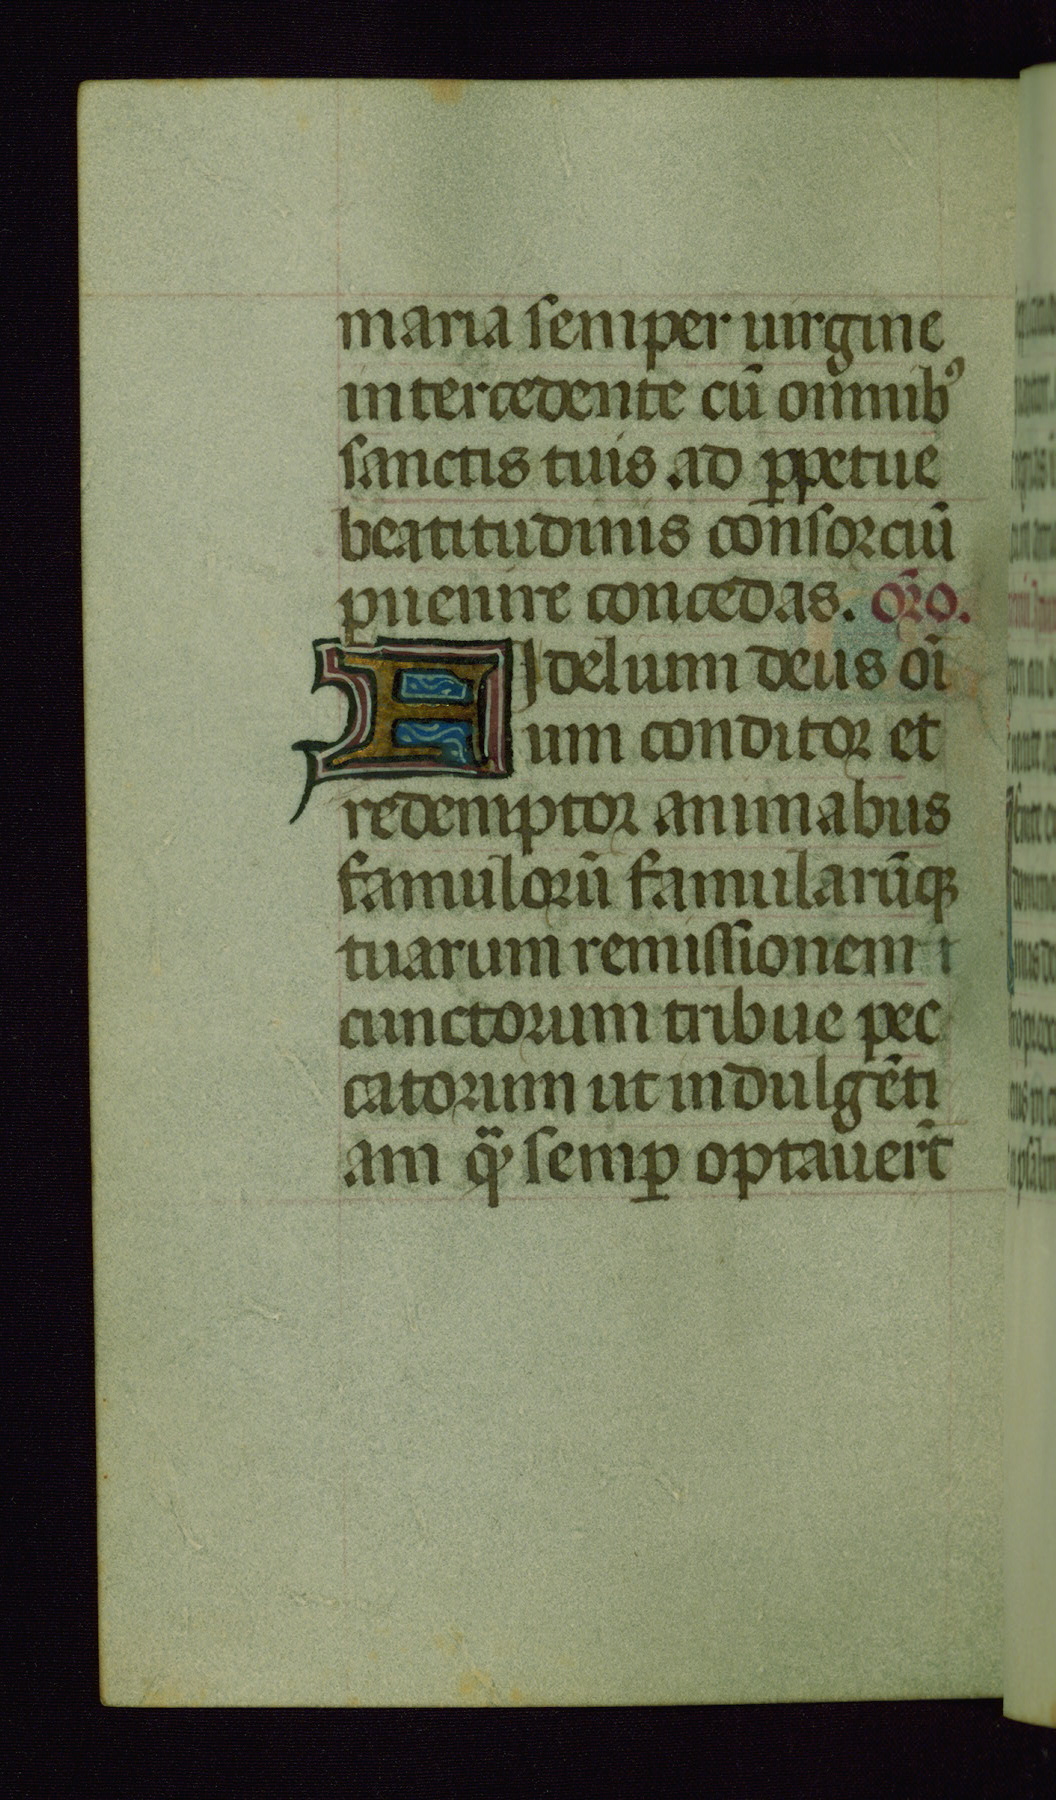 maria semper uirgine
intercedente cū omnibꝰ
sanctis tuis ad ꝑpetue
beatitudinis consorciū
ꝑuenire concedas. oro̅.
FIdelium deus oı̅
um conditor et
redemptor animabus
famulorū famularūqꝫ
tuarum remissionem
cunctorum tribue pec
catorum ut indulgēti
am q̄ semꝑ optauer̄t